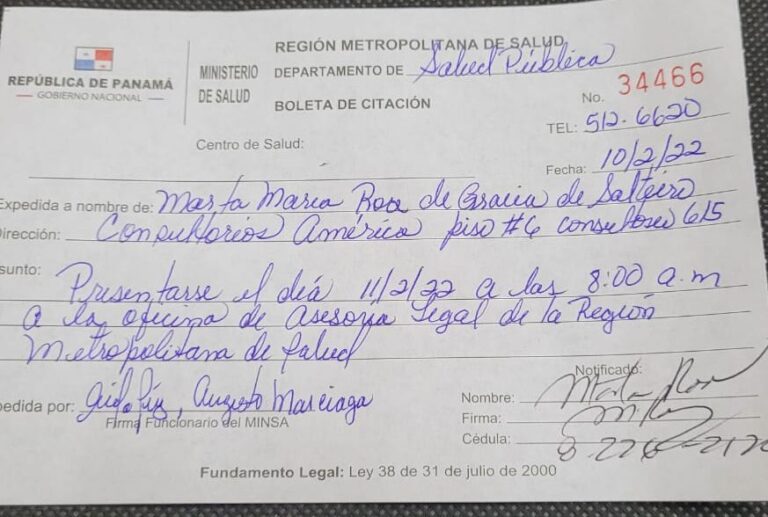 REPÚBLICA DE PANAMÁ
— GOBIERNO NACIONAL —
MINISTERIO
DE SALUD
REGIÓN METROPOLITANA DE SALUD
DEPARTAMENTO DE Salud Pública
BOLETA DE CITACIÓN
No. 34466
TEL: 512-6620
Centro de Salud:
Fecha: 10/2/22
Expedida a nombre de: Marta Maria Roa de Gracia de
Dirección: Consultorios América piso #6 615
sunto: Presentarse el día 11/2/22 a las 8:00 a.m
a la oficina de Asesoria Legal de la Región
Metropolitana de Salud
pedida por: Augusto Marciaga
Firma Funcionario del MINSA
Notificado:
Nombre: Marta Roa
Firma:
Cédula:
Fundamento Legal: Ley 38 de 31 de julio de 2000